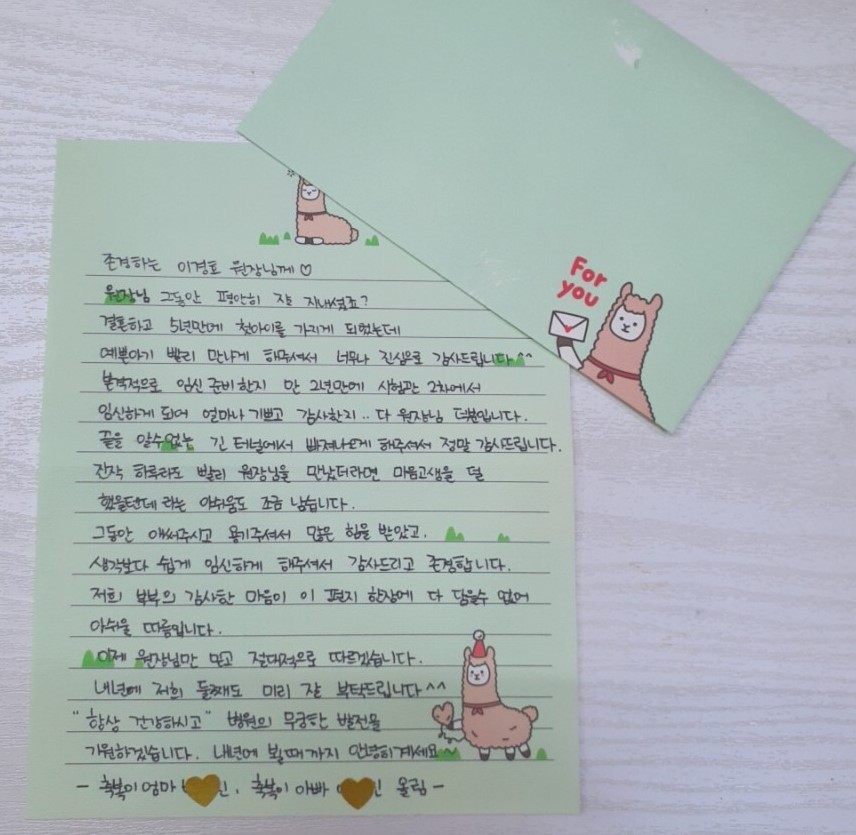 For
you
존경하는 이경호 원장님께♡
원장님 그동안 평안히 잘 지내셨죠?
결혼하고 5년만에 첫아이를 가지게 되었는데
예쁜아기 빨리 만나게 해주셔서 너무나 진심으로 감사드립니다^^
본격적으로 임신 준비한지 만 2년만에 시험관 2차에서
임신하게 되어 얼마나 기쁘고 감사한지.. 다 원장님 덕분입니다.
끝을 알수없는 긴 터널에서 빠져나오게 해주셔서 정말 감사드립니다.
진작 하루라도 빨리 원장님을 만났더라면 마음고생을 덜
했을텐데 라는 아쉬움도 조금 남습니다.
그동안 애써주시고 용기주셔서 많은 힘을 받았고.
생각보다 쉽게 임신하게 해주셔서 감사드리고 존경합니다.
저희 부부의 감사한 마음이 이 편지 한장에 다 담을수 없어
아쉬울 따름입니다.
이제 원장님만 믿고 절대적으로 따르겠습니다.
내년에 저희 둘째도 미리 잘 부탁드립니다^^
"항상 건강하시고" 병원의 무궁한 발전을
기원하겠습니다. 내년에 뵐때까지 안녕히계세요
- 축복이 엄마 인, 축복이 아빠 진 올림-